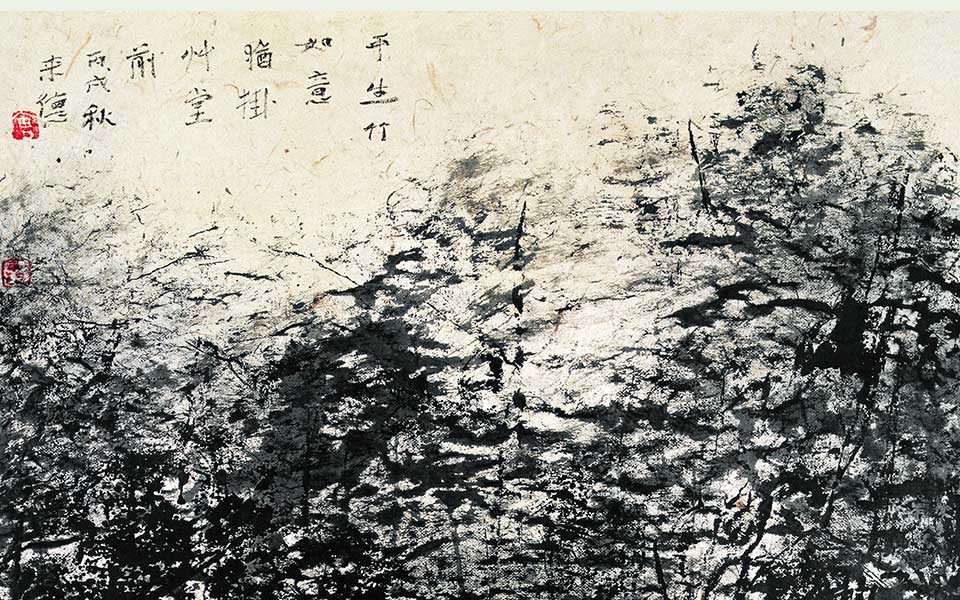 平生竹
如意
猶掛
艸堂
前
丙戌秋
来德